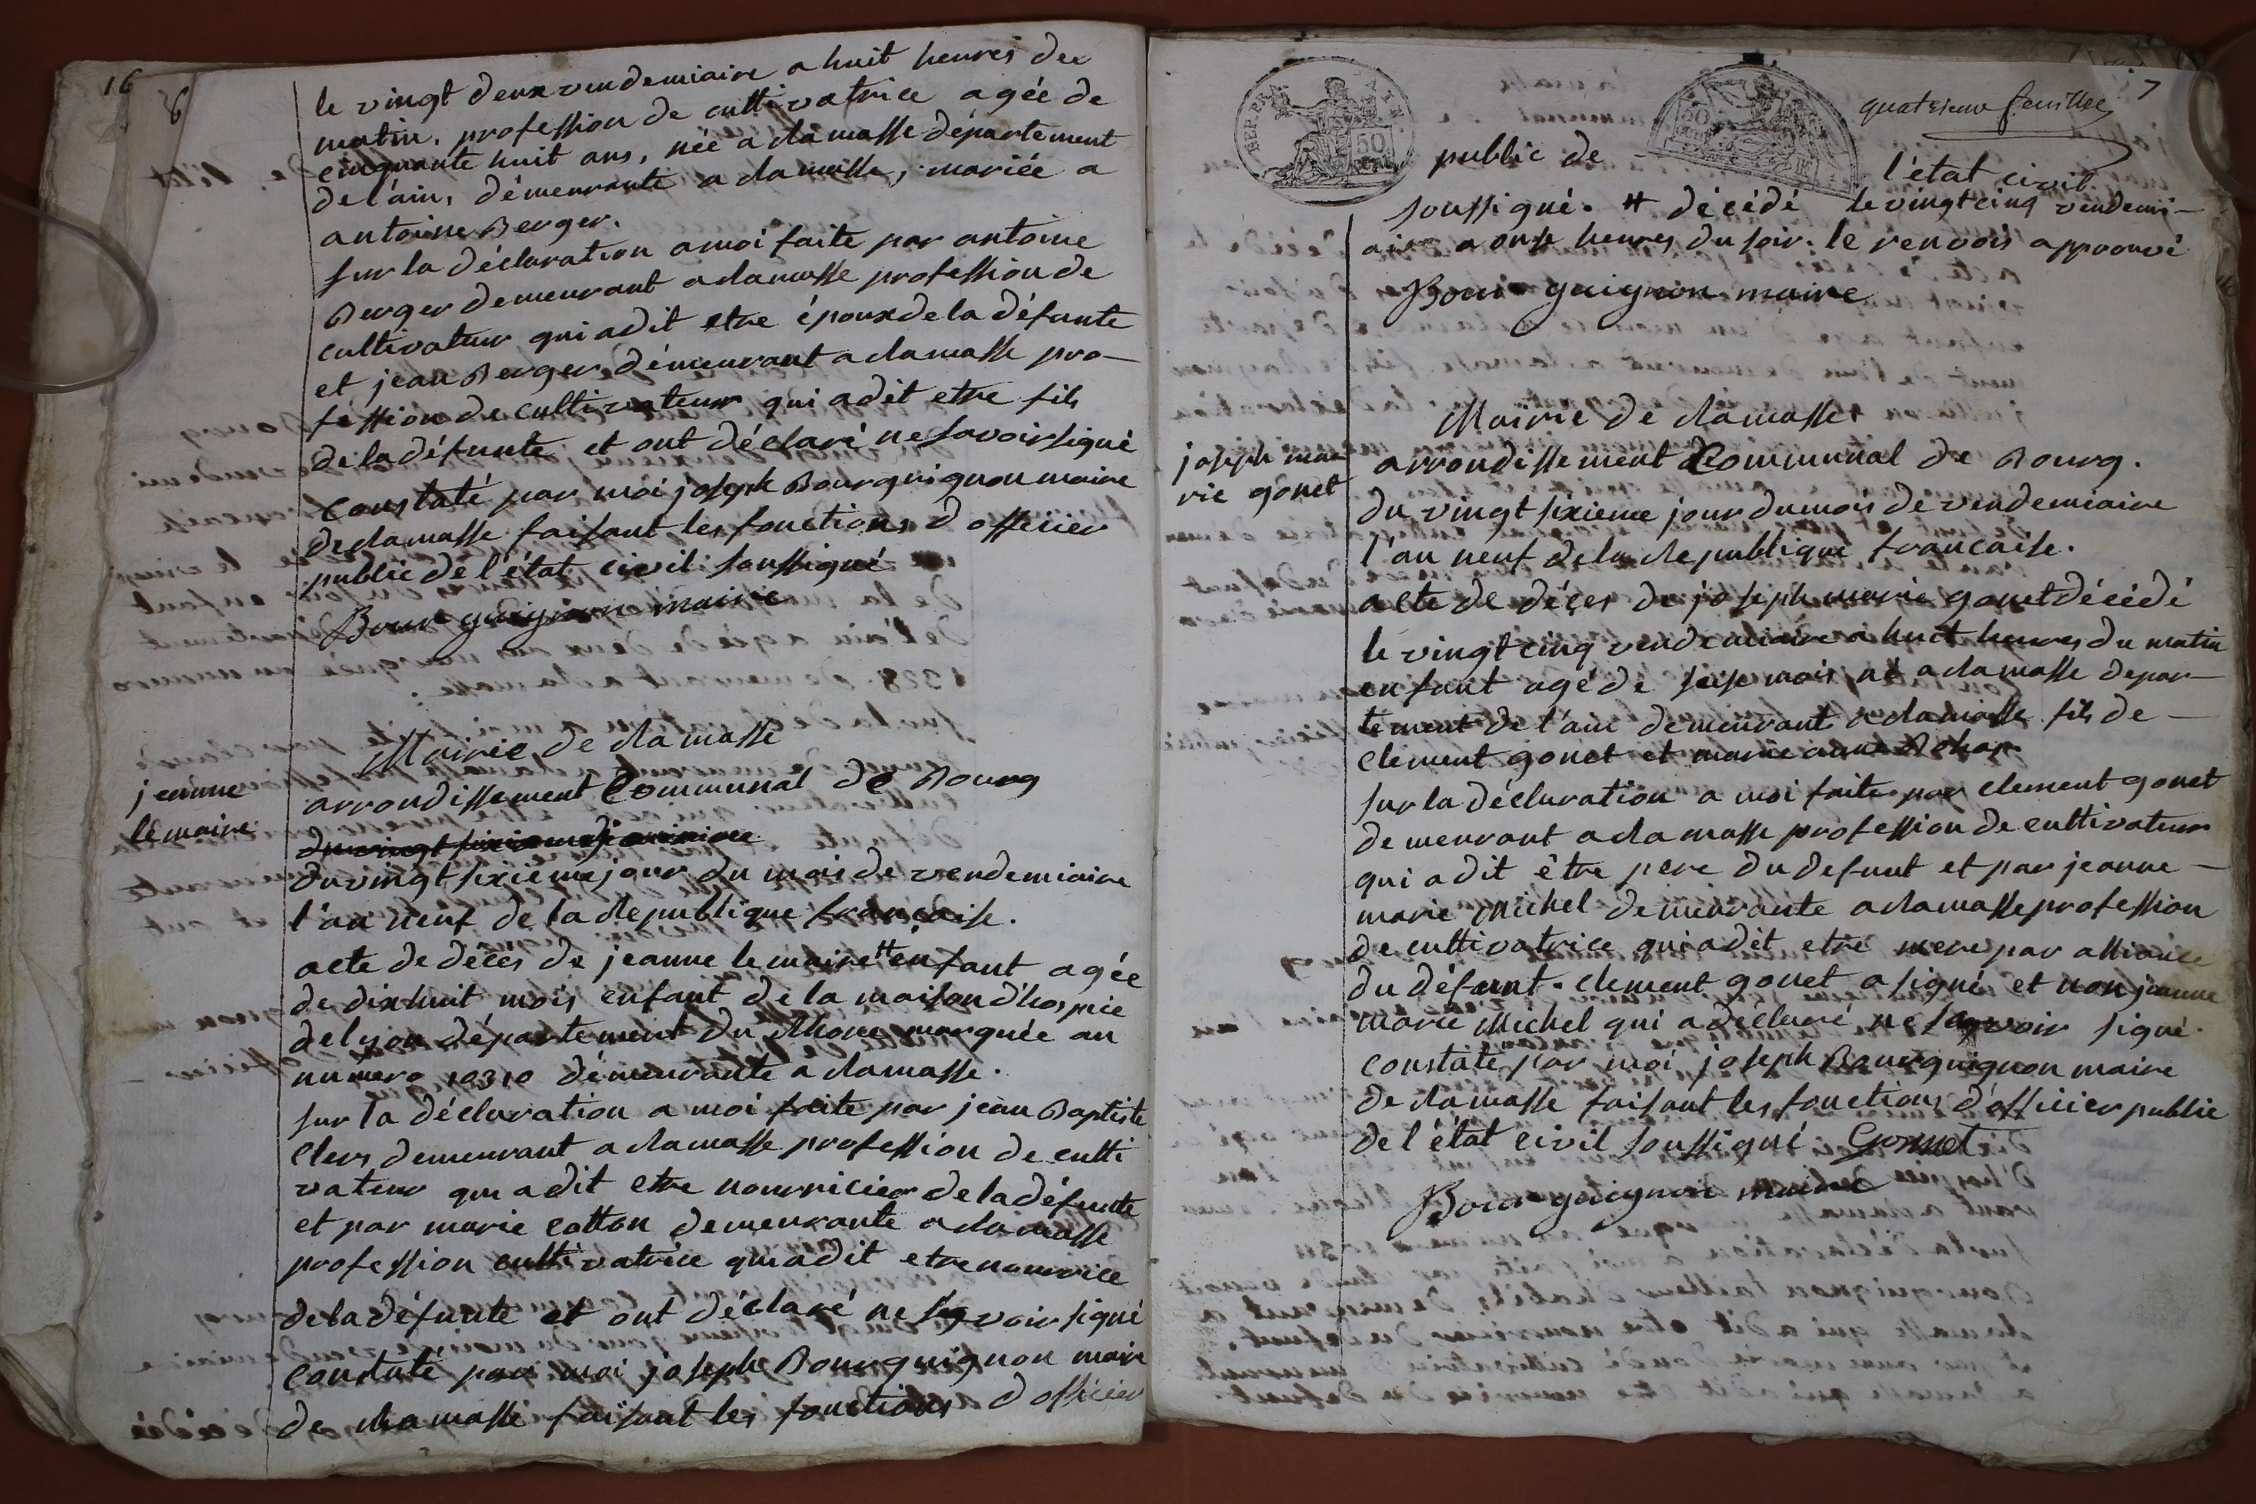 16
6
le vingt deux vendemiaire a huit heures des
matin. profession de cultivatrice agée de
cinquante huit ans, née a Ramasse département
de l'ain, démeurante a Ramasse, mariée a
antoine Berger.
sur la déclaration a moi faite par antoine
Berger demeurant a Ramasse profession de
cultivateur qui a dit etre époux de la défunte
et jean Berger démeurant a Ramasse pro-
fession de cultivateur qui a dit etre fils
de la défunte et ont déclaré ne savoir signé
Constaté par moi joseph Bourguignon maire
de Ramasse faisant les fonctions d officier
public de l'état civil soussigné
Bourguignon maire
Mairie de Ramasse
jeanne
le maire
arrondissement Communal de Bourg
du vingt sixieme
du vingt sixieme jour du mois de vendemiaire
l'an neuf de la Republique francaise.
acte de décès de jeanne le maire # enfant agée
de dix huit mois enfant de la maison d'hospice
de lyon département du Rhone marquée au
numero 10310 démeurante a Ramasse.
sur la déclaration a moi faite par jean Baptiste
Clers demeurant a Ramasse profession de culti
vateur qui a dit etre nourricier de la défunte
et par marie cotton demeurante a Ramasse
profession cultivatrice qui a dit etre nourrice
de la défunte et ont déclaré ne sçavoir signé
constaté par moi joseph Bourguignon maire
de Ramasse faisant les fonctions d officier
7
quatrieme feuillee
BER
50
50
public de l'état civil
soussigné. # décédé le vingt cinq vendemi-
aire a onse heures du soir. le renvois approuvé
Bourguignon maire
Mairie de Ramasse
joseph ma
rie gonet
arrondissement Communal de Bourg.
du vingt sixieme jour du mois de vendemiaire
l'an neuf de la Republique francaise.
acte de déçes de joseph marie gonet décédé
le vingt cinq vendemiaire a huit heures du matin
enfant agé de seise mois né a Ramasse depar-
tement de l'ain demeurant a Ramasse fils de -
Clement gonet et marie anne
sur la déclaration a moi faite par Clement gonet
demeurant a Ramasse profession de cultivateur
qui a dit être pere du defunt et par jeanne -
marie Michel demeurante a Ramasse profession
de cultivatrice qui a dit etre mere par alliance
du défunt. Clement gonet a signé et non jeanne
marie Michel qui a declaré ne sçavoir signé.
constaté par moi joseph Bourguignon maire
de Ramasse faisant les fonctions d'officier public
de l'état civil soussigné Gonnet
Bourguignon maire